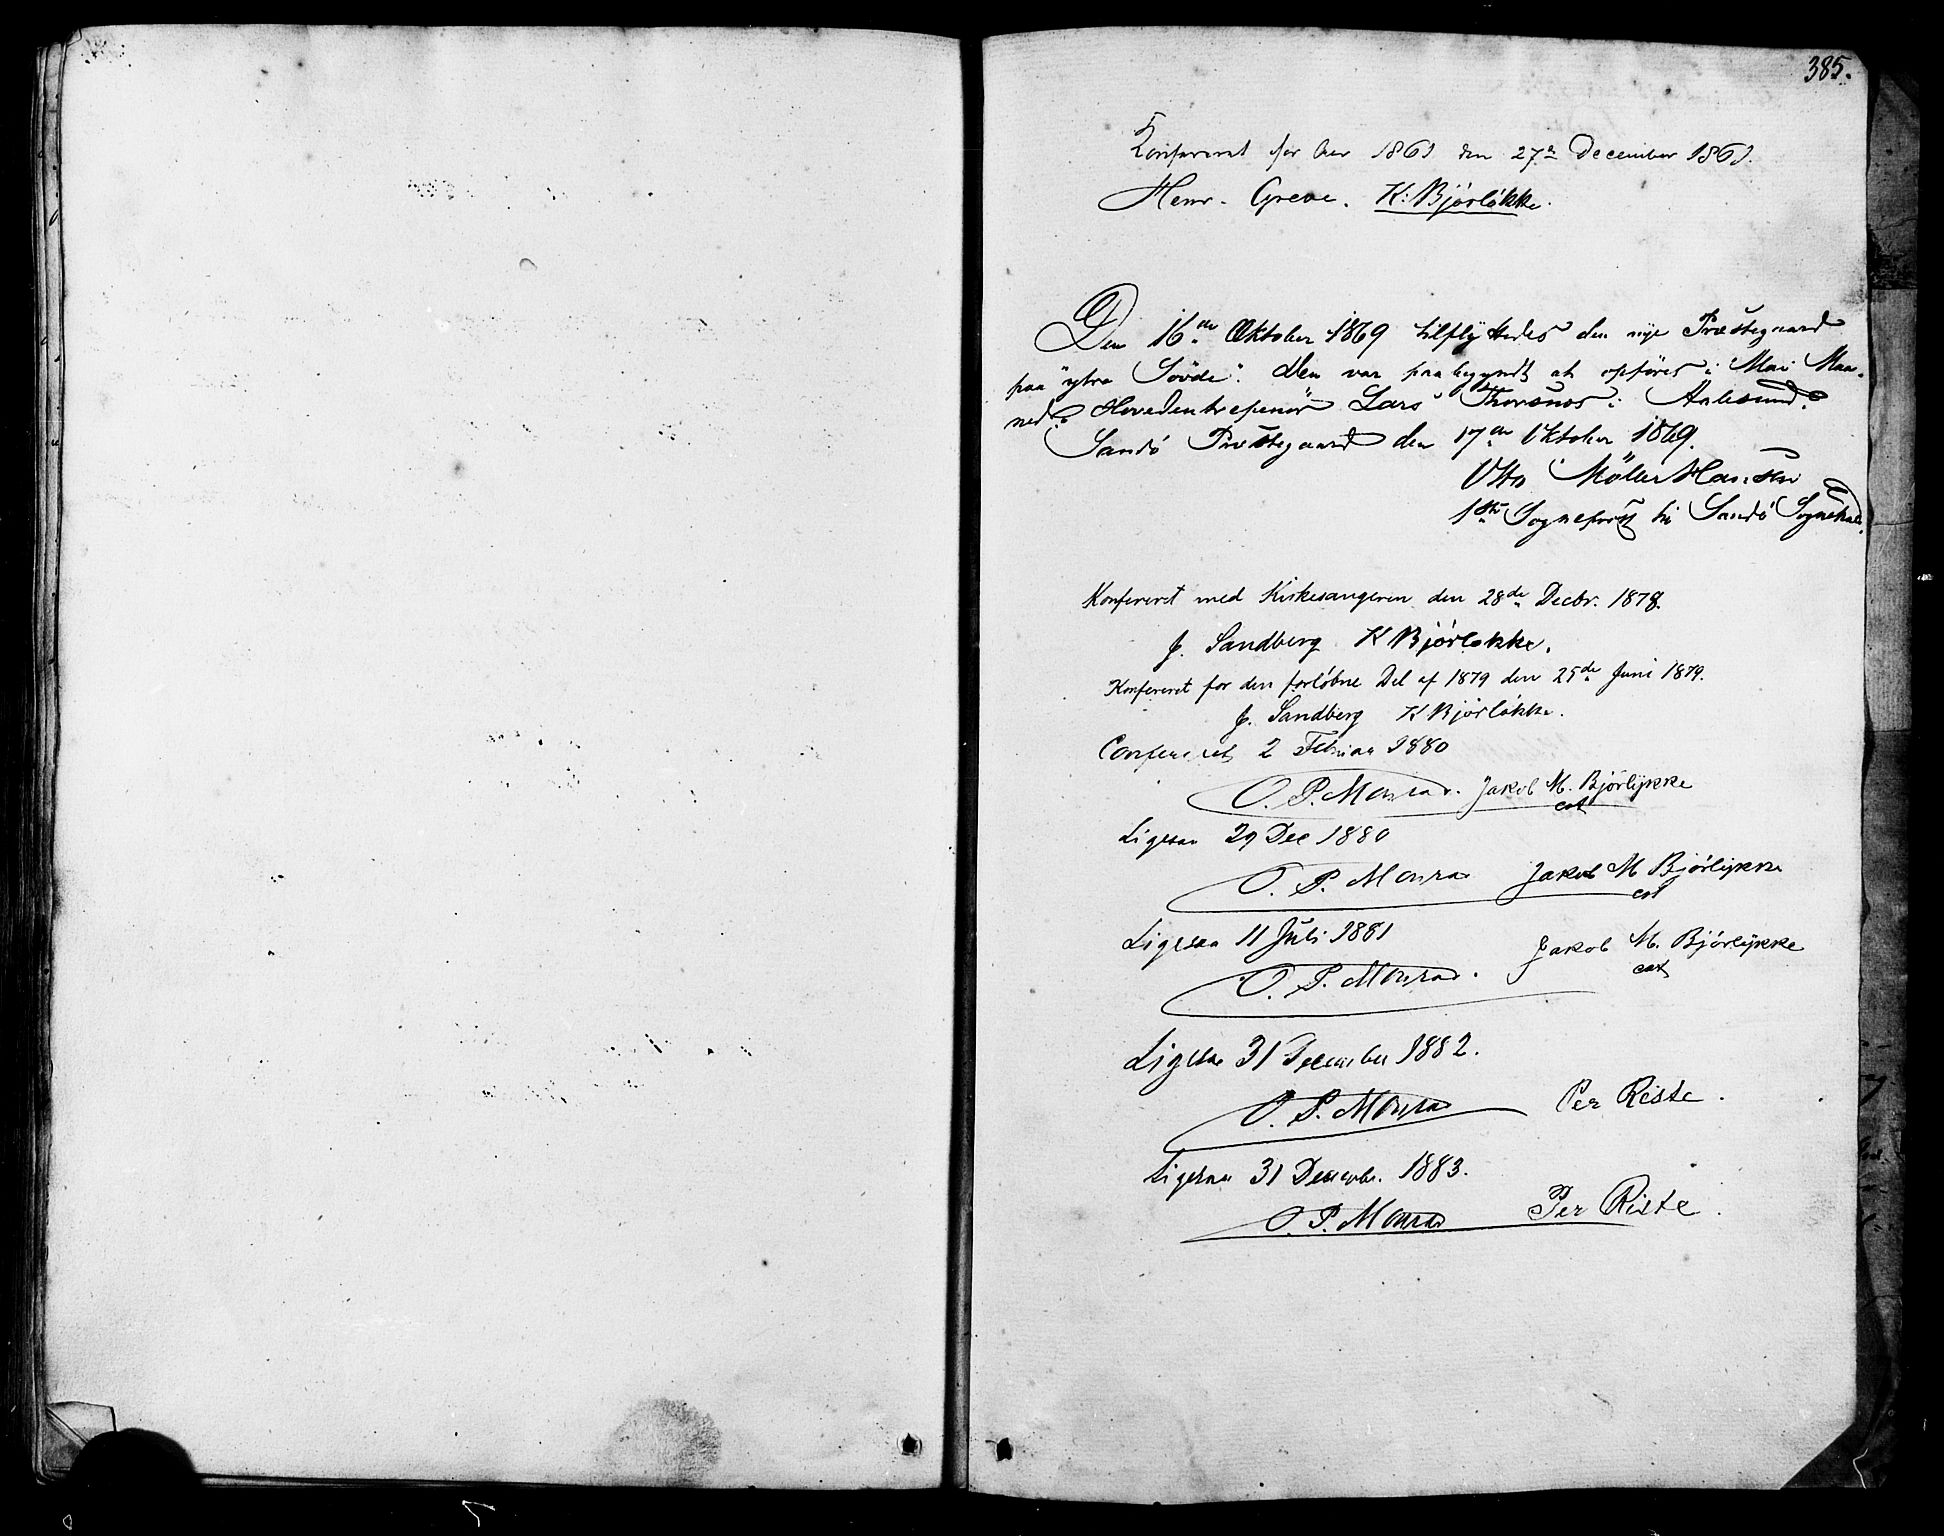 385.
Konfereret for Aar 1861 den 27de December 1861.
Henr. Greve. K: Bjørløkke.
Den 16de Oktober 1869 tilflyttedes den nye Præstegaard
paa "ytre Søvde". Den var paabegyndt at opføres i Mai Maa-
ned. Hovedentrepenør Lars Thorsnos i Aalesund.
Sandö Præstegaard den 17de Oktober 1869.
Otto Möller Hansen
1ste Sognepræst til Sandö Sognekald.
Konfereret med Kirkesangeren den 28de Decbr. 1878.
J. Sandberg K Bjørløkke.
Konfereret for den forløbne Del af 1879 den 25de Juni 1879.
J. Sandberg K Bjørløkke.
Confereret 2 Februar 1880
O. P. Monrad. Jakob M. Bjørlykke
cat
Ligesaa 29 Dec 1880
O. P. Monrad Jakob M Bjørlykke
cat
Ligesaa 11 Juli 1881
O. P. Monrad. Jakob M. Bjørlykke
cat
Ligesaa 31 December 1882.
O. P. Monrad Per Riste.
Ligesaa 31 Decembr. 1883.
O. P. Monrad Per Riste.